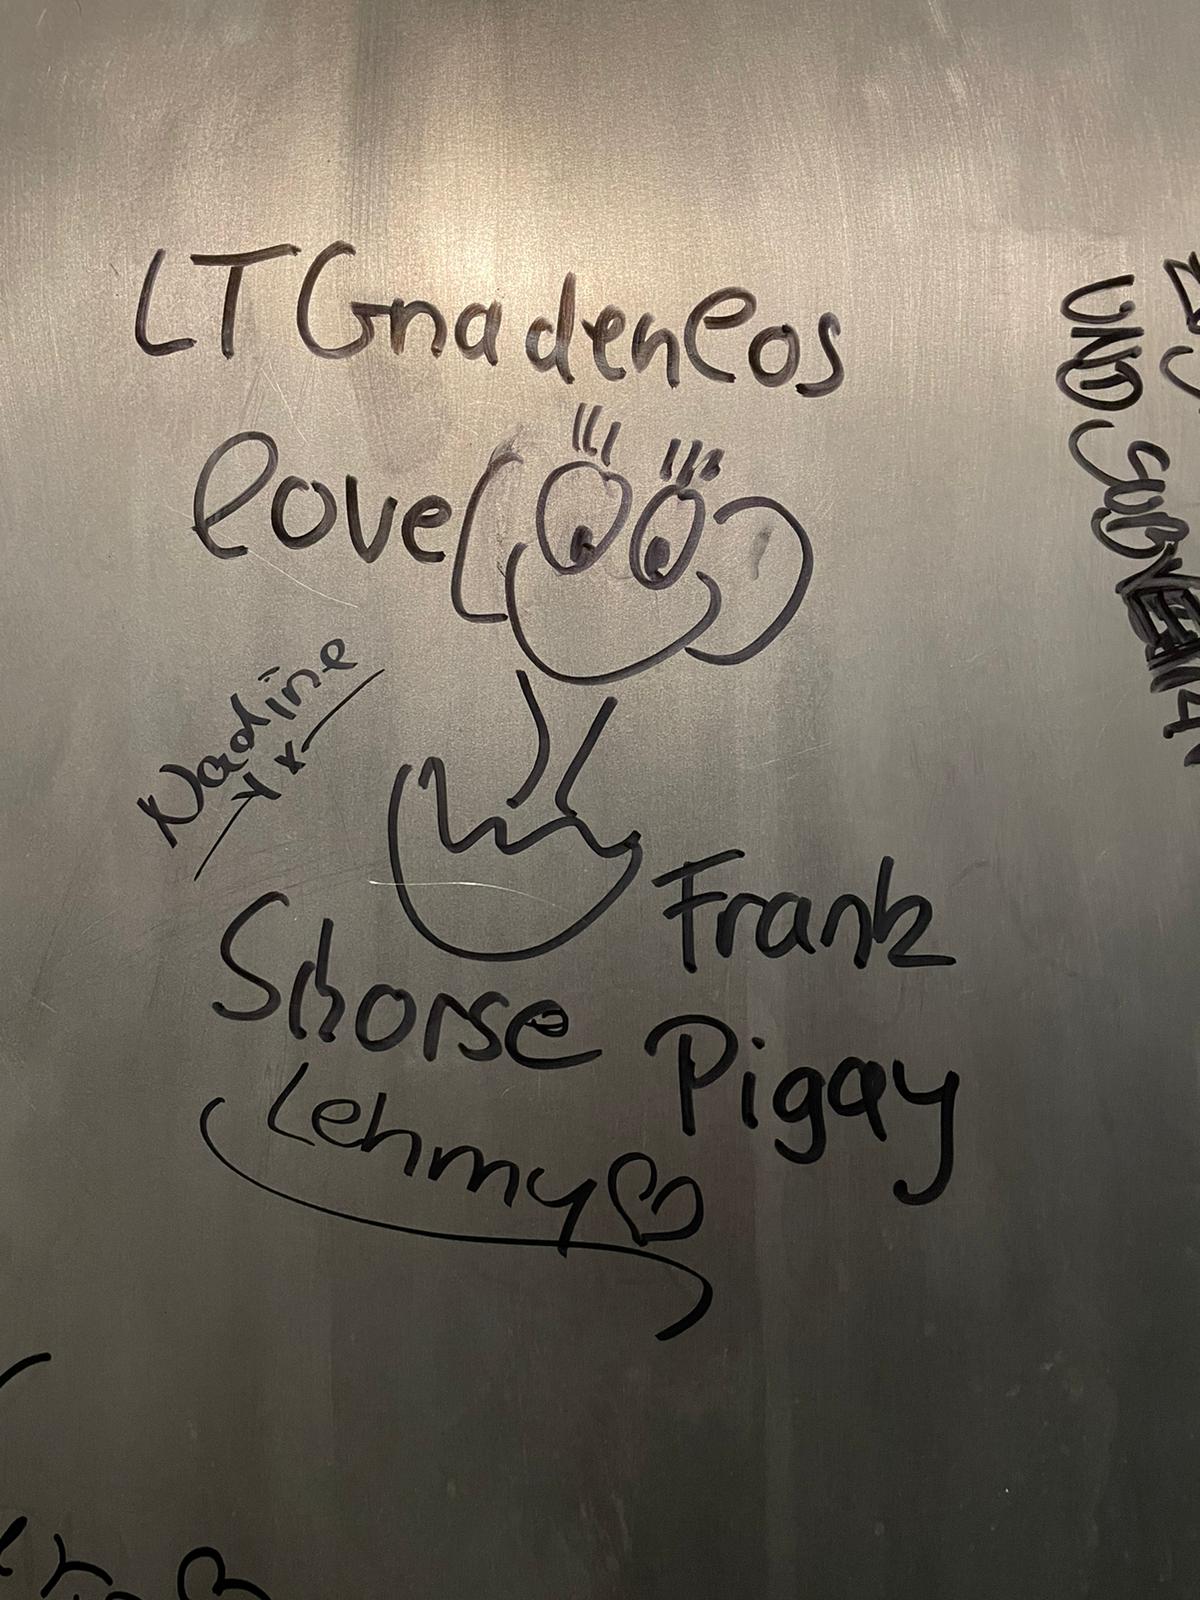 LT Gnadenlos
love
Nadine
xx
Frank
Shorse
Pigay
Lehmy♡
UND